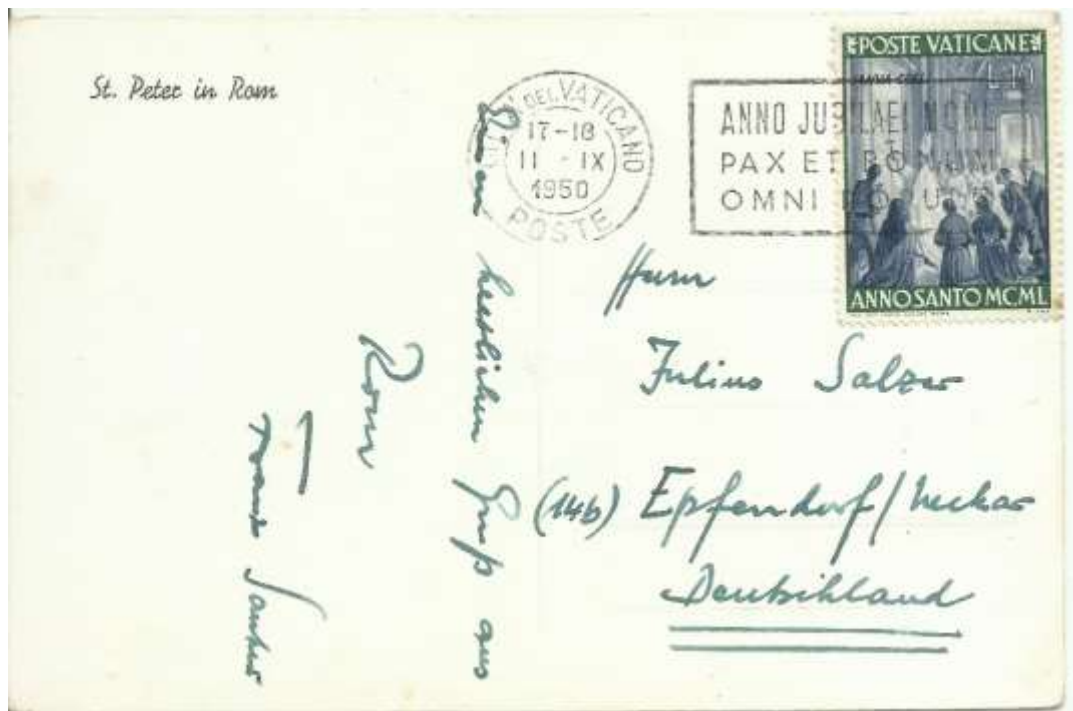 St. Peter in Rom
CITTA' DEL VATICANO
17-18
11-IX
1950
POSTE
ANNO JUBILAEI MCML
PAX ET BONUM
OMNI POPULO
POSTE VATICANE
L. 10
ANNO SANTO MCML
Einen herzlichen Gruß aus
Rom
Franz Sauter
Herrn
Julius Salzer
(14b) Epfendorf/Neckar
Deutschland